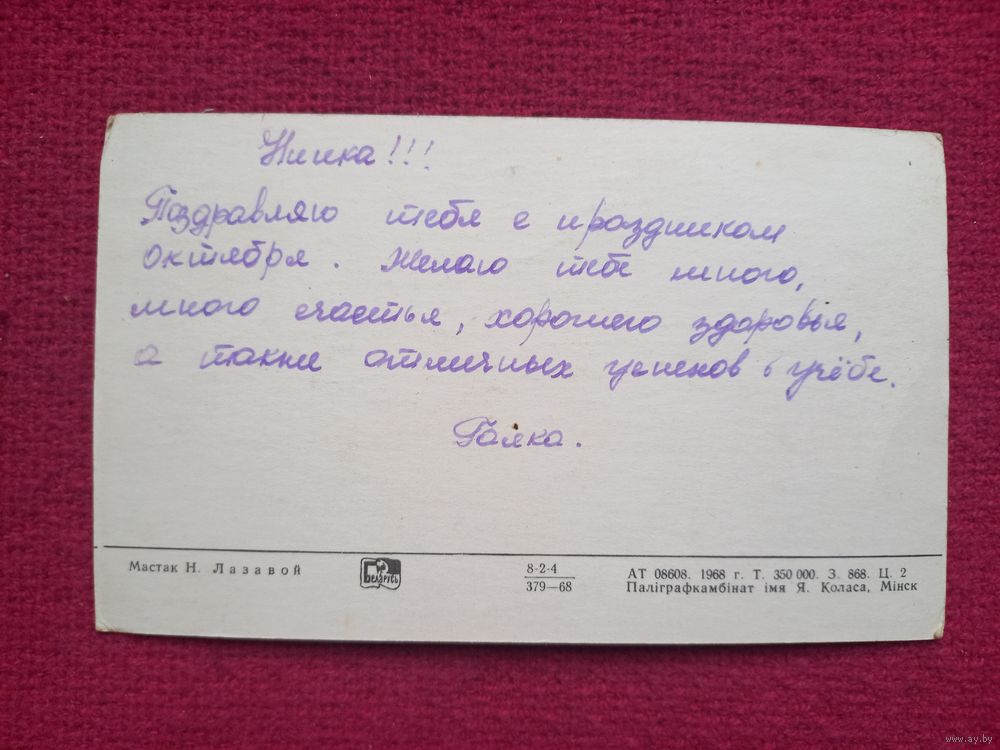 Нинка!!!
Поздравляю тебя с праздником
октября. Желаю тебе много,
много счастья, хорошего здоровья,
а также отличных успехов в учёбе.
Галка.
Мастак Н. Лазавой
Беларусь
8-2-4
379—68
АТ 08608. 1968 г. Т. 350 000. З. 868. Ц. 2
Паліграфкамбінат імя Я. Коласа, Мінск
www.ay.by